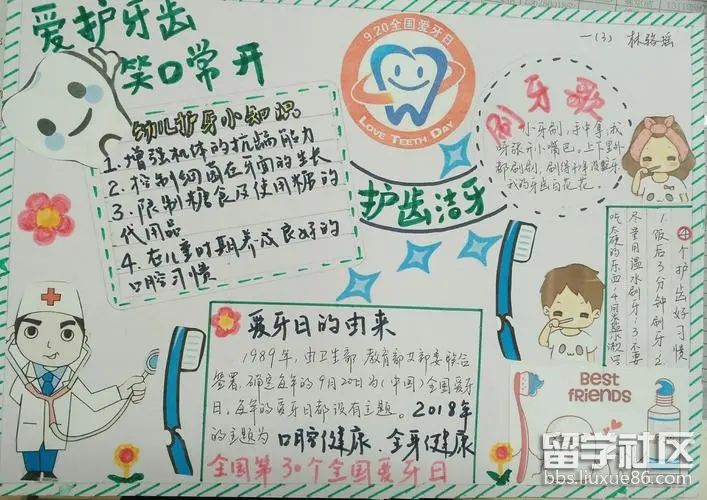 爱护牙齿
笑口常开
9.20全国爱牙日
LOVE TEETH DAY
一(3) 林骆瑶
幼儿护牙小知识
1.增强机体的抗龋能力
2.控制细菌在牙面的生长
3.限制糖食及使用糖的
代用品
4.在儿童时期养成良好的
口腔习惯
护齿洁牙
刷牙歌
小牙刷,手中拿,我
呀张开小嘴巴。上下里外
都刷刷,
我的牙齿白花花。
4个护齿好习惯
1.饭后3分钟刷牙2.
尽量用温水刷牙3.不要
吃太硬的东西
爱牙日的由来
1989年,由卫生部 教育部等部委联合
签署,确定每年的9月20日为(中国)全国爱牙
日,每年的爱牙日都设有主题。2018年
的主题为 口腔健康 全身健康
全国第30个全国爱牙日
BEST
FRIENDS
留学社区
bbs.liuxue86.com